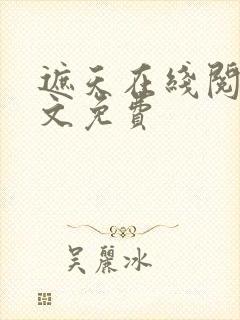 遮天在綫閱
文免費
吴麗冰